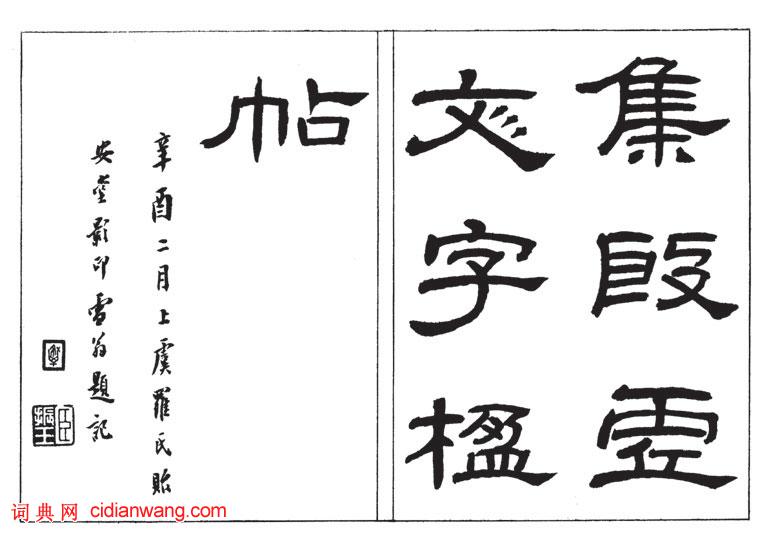 集殷虛
文字楹
帖
辛酉二月上虞羅氏貽
安堂影印雪翁題記
臣振玉
词典网 cidianwang.com